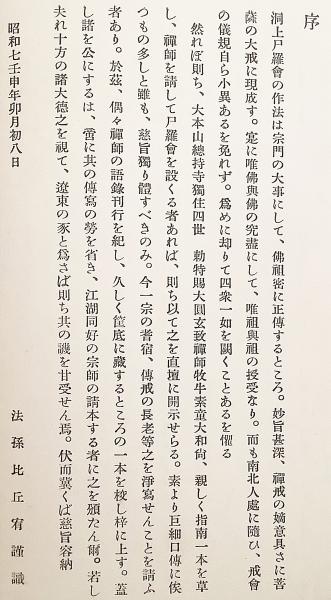 序
洞上尸羅會の作法は宗門の大事にして、佛祖密に正傳するところ。妙旨甚深、禪戒の嫡意具さに菩
薩の大戒に現成す。寔に唯佛與佛の究盡にして、唯祖與祖の授受なり。而も南北人處に隨ひ、戒會
の儀規自ら小異あるを免れず。爲めに却りて四衆一如を闕くことあるを懼る
然れば則ち、大本山總持寺獨住四世　勅特賜大圓玄致禪師牧牛素童大和尙、親しく指南一本を草
し、禪師を請して尸羅會を設くる者あれば、則ち以て之を直壇に開示せらる。素より巨細口傳に俟
つもの多しと雖も、慈旨獨り體すべきのみ。今一宗の耆宿、傳戒の長老等之を淨寫せんことを請ふ
者あり。於茲、偶々禪師の語錄刊行を紀し、久しく筐底に藏するところの一本を校し梓に上す。蓋
し諸を公にするは、啻に其の傳寫の勞を省き、江湖同好の宗師の請本する者に之を頒たん爾。若し
夫れ十方の諸大德之を視て、遼東の豕と爲さば則ち其の譏を甘受せん焉。伏而冀くば慈旨容納
昭和七壬申年卯月初八日
法孫比丘宥謹識